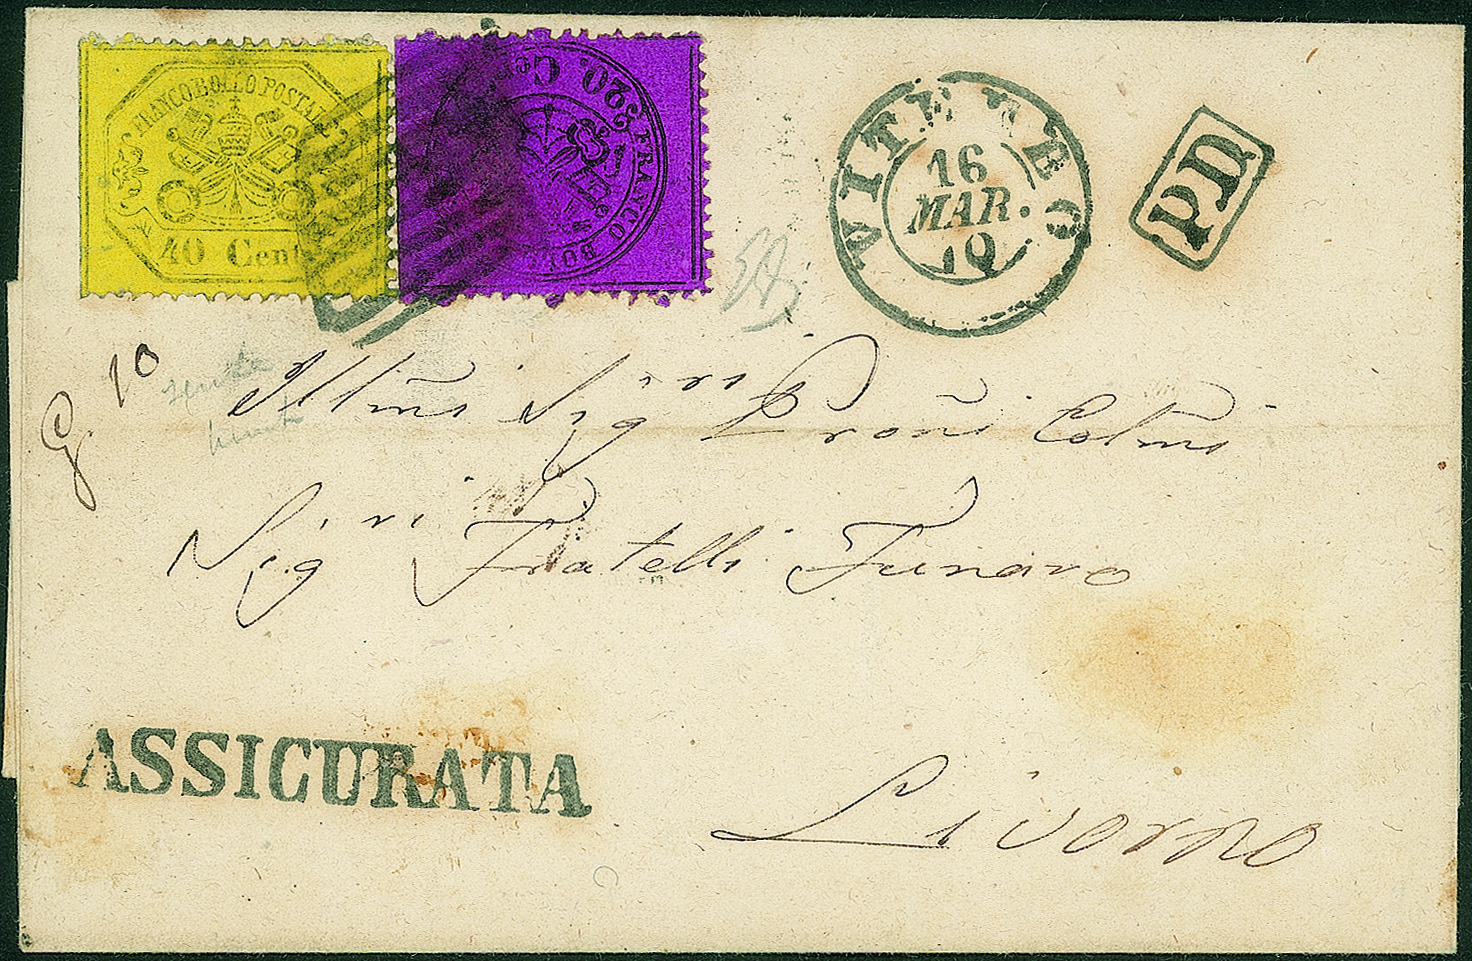 FRANCO BOLLO POSTALE
40 Cent
20. Cen
FRANCO BOL
VITERBO
16
MAR.
PD
G. 10
Illmi Sigri Proñi Colmi
Sigri Fratelli Funaro
ASSICURATA
Livorno